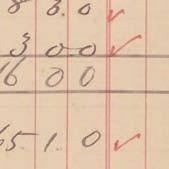 8 3. 0 ✓
3 0 0 ✓
16 0 0
65. 1. 0 ✓